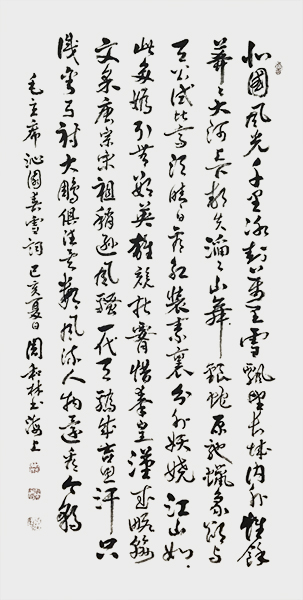 北國風光千里冰封萬里雪飄望長城内外惟餘
莽々大河上下頓失滔々山舞銀蛇原馳蠟象欲与
天公試比高須晴日看紅裝素裹分外妖嬈江山如
此多嬌引無數英雄競折腰惜秦皇漢武略輸
文采唐宗宋祖稍遜風騷一代天驕成吉思汗只
識彎弓射大鵰俱往矣數風流人物還看今朝
毛主席沁園春雪詞己亥夏日周林书海上